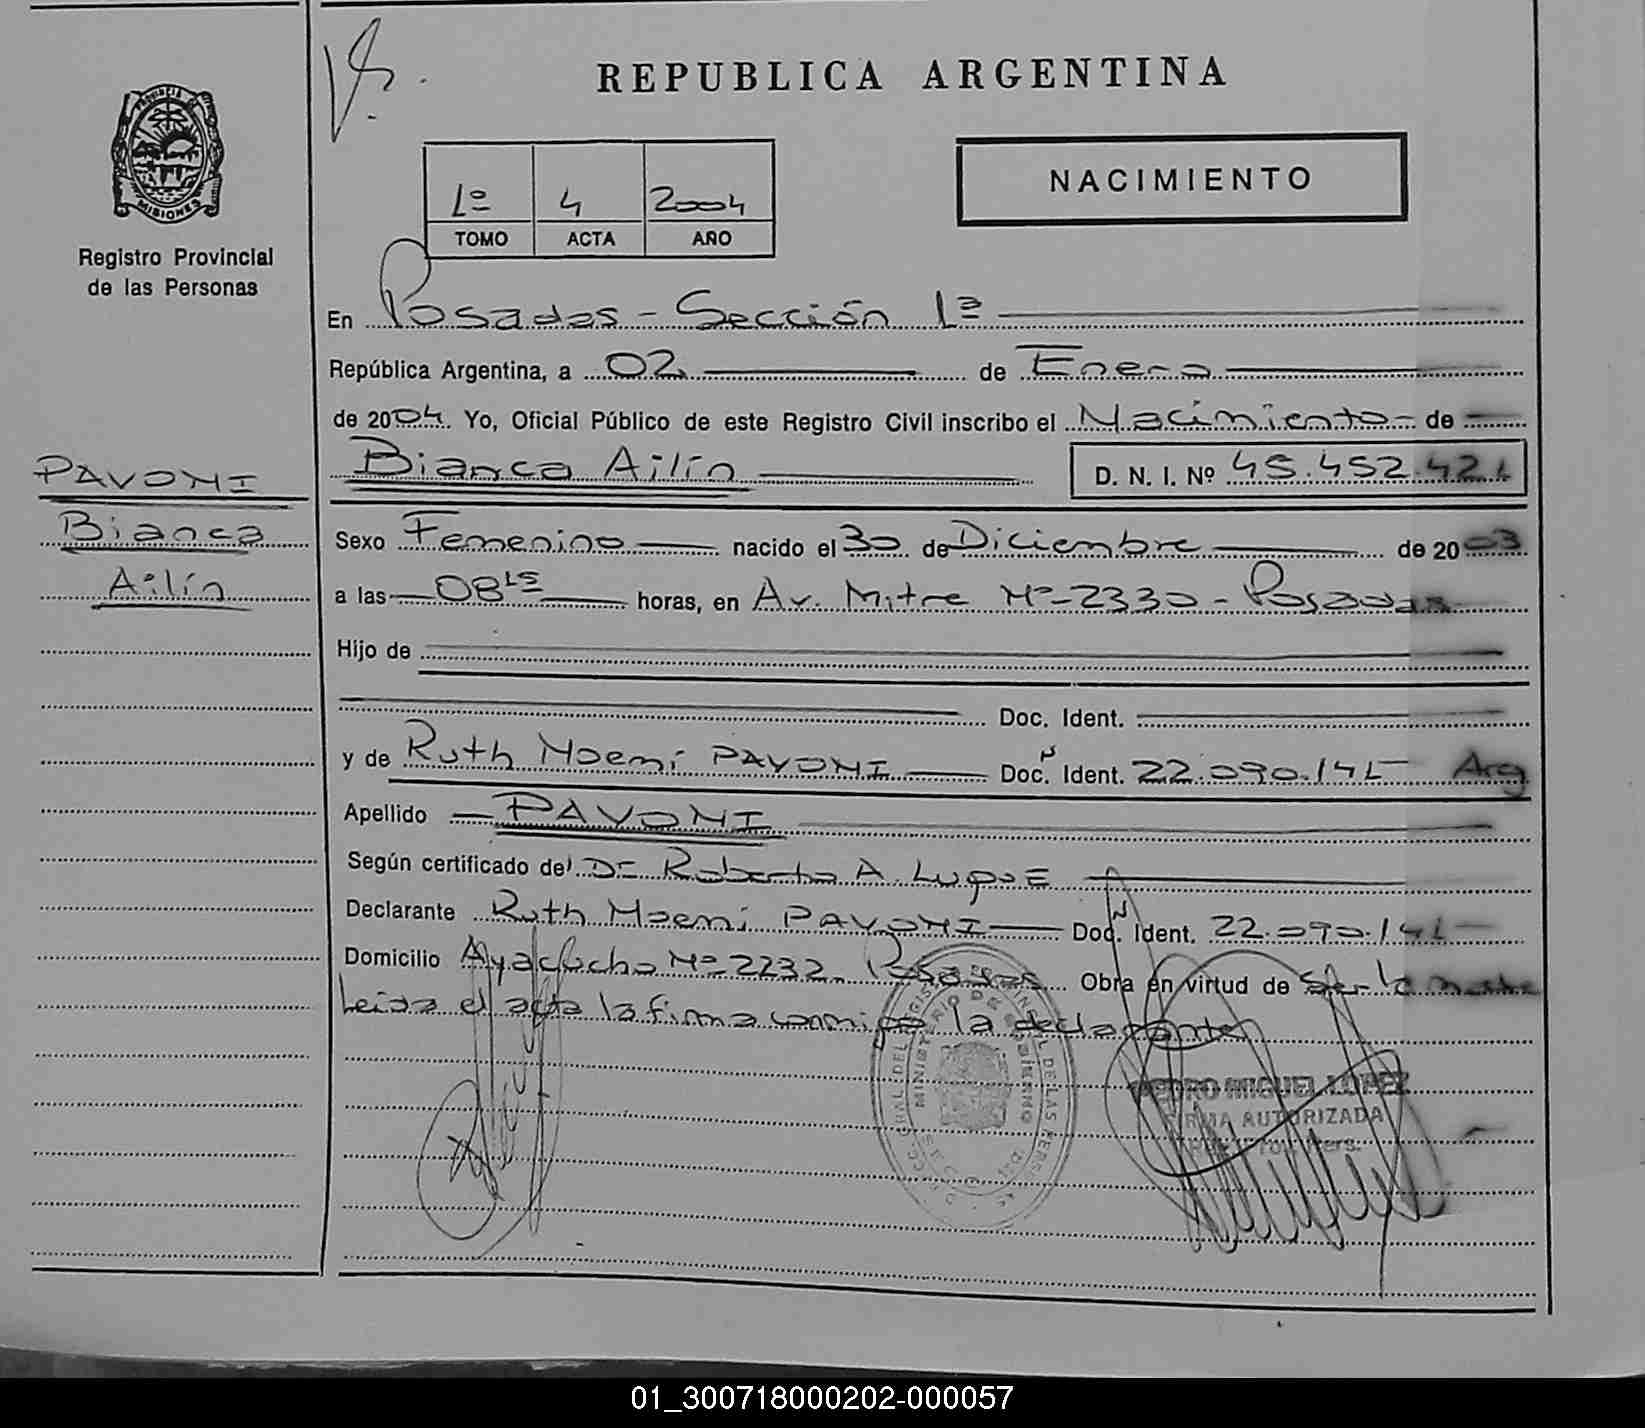 REPUBLICA ARGENTINA
PROVINCIA DE
MISIONES
Registro Provincial
de las Personas
1º 4 2004
TOMO ACTA AÑO
NACIMIENTO
En Posadas - Sección 1ª
República Argentina, a 02 de Enero
de 2004. Yo, Oficial Público de este Registro Civil inscribo el Nacimiento de
Bianca Ailín D. N. I. Nº 45.452.421
PAVONI
Bianca
Ailín
Sexo Femenino nacido el 30 de Diciembre de 2003
a las 08 15 horas, en Av. Mitre Nº 2330 - Posadas
Hijo de
Doc. Ident.
y de Ruth Noemí PAVONI Doc. N Ident. 22.090.141 Arg
Apellido PAVONI
Según certificado de Dr Roberto A. Lupoe
Declarante Ruth Noemí PAVONI Doc. N Ident. 22.090.141
Domicilio Ayacucho Nº 2232 Posadas Obra en virtud de ser la madre
Leida el acta la firma conmigo la declarante
MINISTERIO DE GOBIERNO
PEDRO MIGUEL LOPEZ
FIRMA AUTORIZADA
01_300718000202-000057